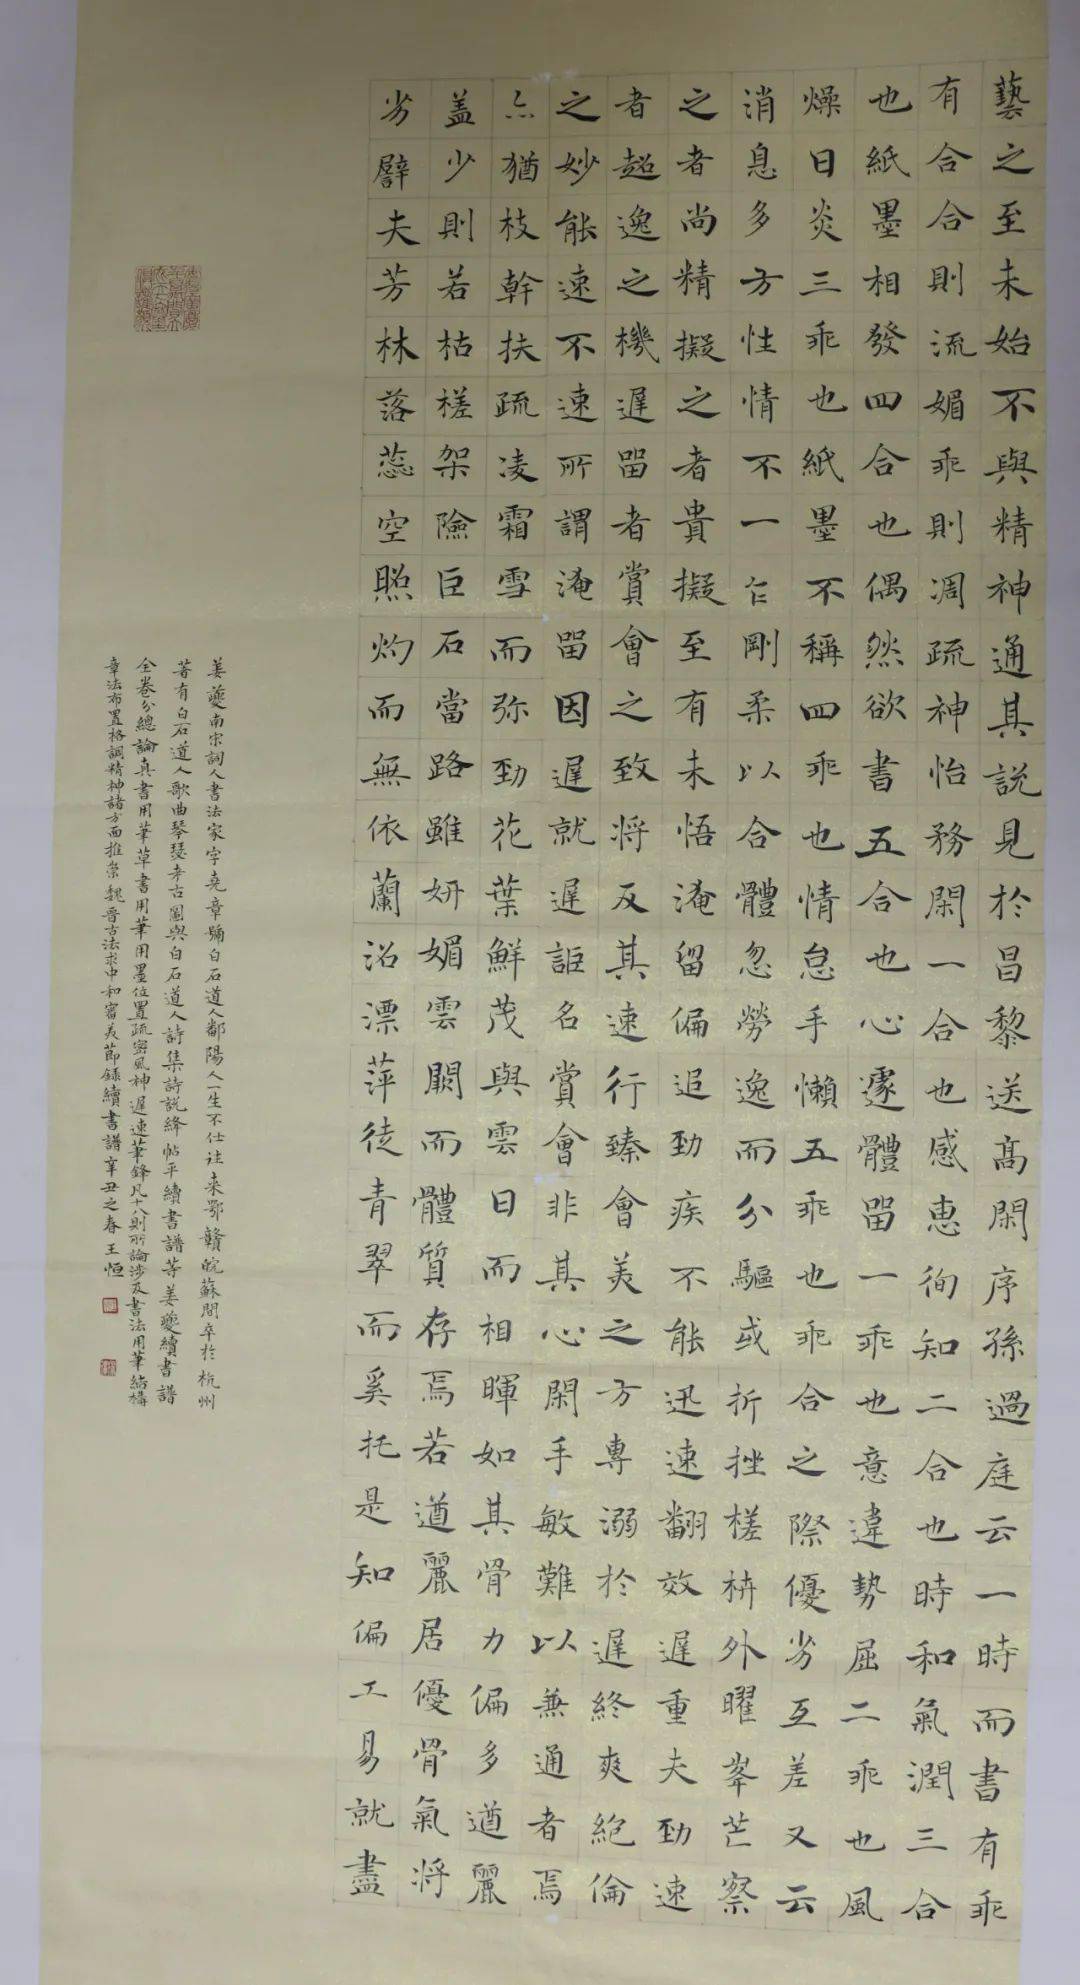 藝之至未始不與精神通其説見於昌黎送髙閑序孫過庭云一時而書有乖
有合合則流媚乖則凋疏神怡務閑一合也感恵徇知二合也時和氣潤三合
也紙墨相發四合也偶然欲書五合也心遽體留一乖也意違勢屈二乖也風
燥日炎三乖也紙墨不稱四乖也情怠手懶五乖也乖合之際優劣互差又云
消息多方性情不一乍剛柔以合體忽勞逸而分驅或折挫槎枿外曜峯芒察
之者尚精擬之者貴擬至有未悟淹留偏追勁疾不能迅速翻效遲重夫勁速
者超逸之機遲留者賞會之致將反其速行臻會美之方專溺於遲終爽絶倫
之妙能速不速所謂淹留因遲就遲詎名賞會非其心閑手敏難以兼通者焉
亦猶枝幹扶疏凌霜雪而弥勁花葉鮮茂與雲日而相暉如其骨力偏多遒麗
盖少則若枯槎架險巨石當路雖妍媚雲闕而體質存焉若遒麗居優骨氣將
劣譬夫芳林落蕊空照灼而無依蘭沼漂萍徒青翠而奚托是知偏工易就盡
姜夔南宋詞人書法家字堯章號白石道人鄱陽人一生不仕往来鄂贛皖蘇間卒於杭州
著有白石道人歌曲琴瑟考古圖與白石道人詩集詩説絳帖平續書譜等姜夔續書譜
全卷分總論真書用筆草書用筆用墨位置疏密風神遲速筆鋒凡十八則所論涉及書法用筆結構
章法布置格調精神諸方面推崇魏晋古法求中和審美節録續書譜辛丑之春王恒